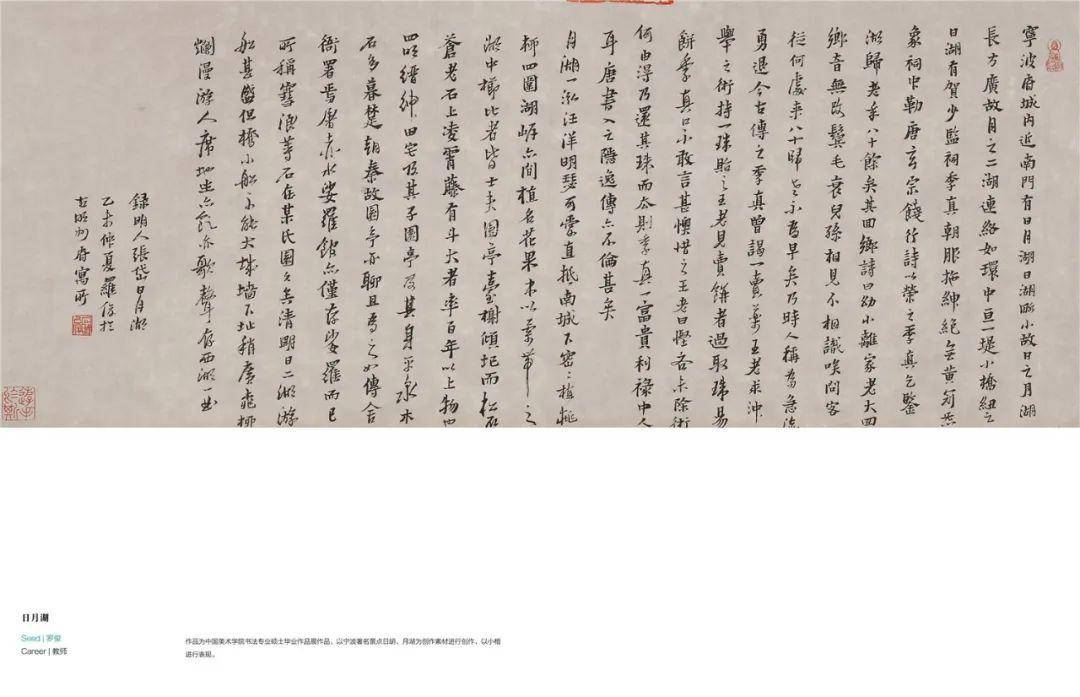 寧波府城内近南門有日月湖日湖略小故日之月湖
長方廣故月之二湖連絡如環中亘一堤小橋紐之
日湖有賀少監祠季真朝服拖紳絕無黄冠氣
象祠中勒唐玄宗餞行詩以榮之季真乞鑒
湖歸老年八十餘矣其回鄉詩曰幼小離家老大回
鄉音無改鬢毛衰兒孫相見不相識笑問客
從何處来八十歸老不為早矣乃時人稱為急流
勇退今古傳之季真曾謁一賣藥王老求沖
舉之術持一珠貽之王老見賣餅者過取珠易
餅季真口不敢言甚懊惜之王老曰慳吝未除術
何由得乃還其珠而去則季真一富貴利祿中人
耳唐書入之隱逸傳亦不倫甚矣
月湖一泓汪洋明瑟可愛直抵南城下密々植桃
柳四圍湖岸亦間植名花果木以縈帶之
湖中櫛比者皆士夫園亭臺榭傾圮而松石
蒼老石上凌霄藤有斗大者率百年以上物也
四明縉紳田宅及其子園亭及其身平泉木
石多暮楚朝秦故園亭亦聊且為之如傳舍
衙署焉屠赤水娑羅館亦僅存娑羅而已
所稱雪浪等石在某氏園久矣清明日二湖游
船甚盛但橋小船不能大城墙下址稍廣桃柳
爛漫游人席地坐亦飲亦歌聲存西湖一曲
録明人張岱日月湖
乙未仲夏羅俊於
古明州府寓所
日月湖
Seed | 罗俊
Career | 教师
作品为中国美术学院书法专业硕士毕业作品展作品，以宁波著名景点日胡、月湖为创作素材进行创作，以小楷
进行表现。